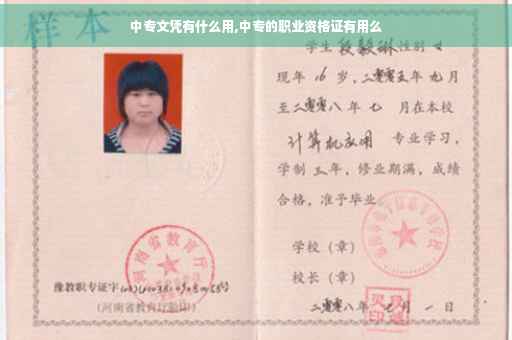 中专文凭有什么用,中专的职业资格证有用么
样本
学生段毅琳性别女
现年16岁,二零零五年九月
至二零零八年七月在本校
计算机应用 专业学习,
学制三年,修业期满,成绩
合格,准予毕业
学校(章)
校长(章)
二零零八年七月一日
河南省教育厅
豫教职专证字
(河南省教育厅验印)